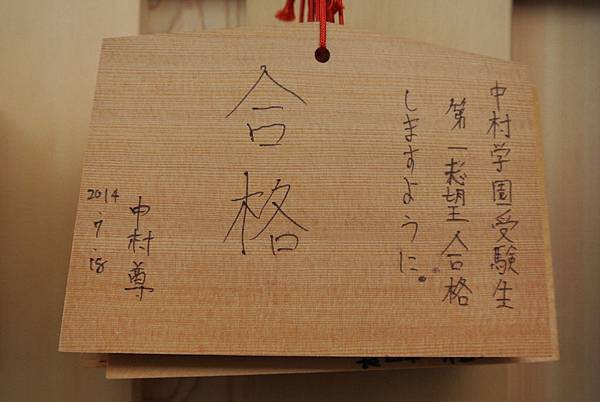 中村学園受験生
第一志望合格
しますように。
合格
中村尊
2014.7.18